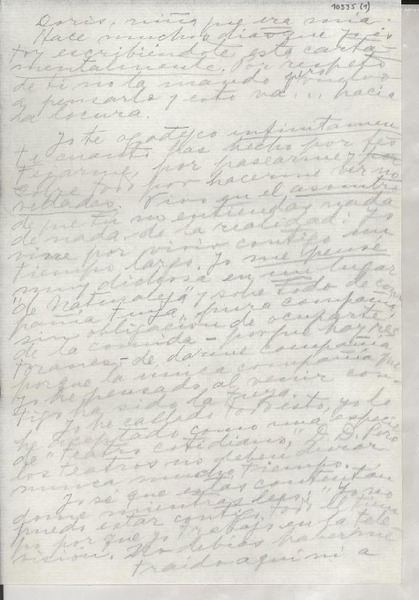 10335 (1)
Doris, niña que era mía:
Hace muchos días que yo es
toy escribiéndote esta carta
mentalmente. Por respeto
de ti no la mando pero vuelvo
a pensarla y esto va... hacia
la locura.
Yo te agradezco infinitamen
te cuanto has hecho por fes
tejarme, por pasearme y
sobre todo por hacerme ver no
vedades. Vivo en el asombro
de que tú no entiendas nada
de nada de la realidad: Yo
vine por vivir contigo un
tiempo largo. Yo me pensé
muy dichosa en un lugar
"de Naturaleza" y sobre todo de com
pañía tuya, pura compañía,
sin obligación de ocuparte
de la comida - porque hay res
toranes - de darme compañía
porque la única compañía que
yo he pensado al venir con
tigo ha sido la tuya.
Yo he callado todo esto, yo lo
he aceptado como una espe
de "teatro cotidiano", D. D. Pero
los teatros no deben durar
nunca mucho tiempo.
Yo sé que estás contentán
dome mientras dices: "Yo no
puedo estar contigo todo el tiem
po porque yo trabajo en la tele
visión. No debías haberme
traído aquí ni a